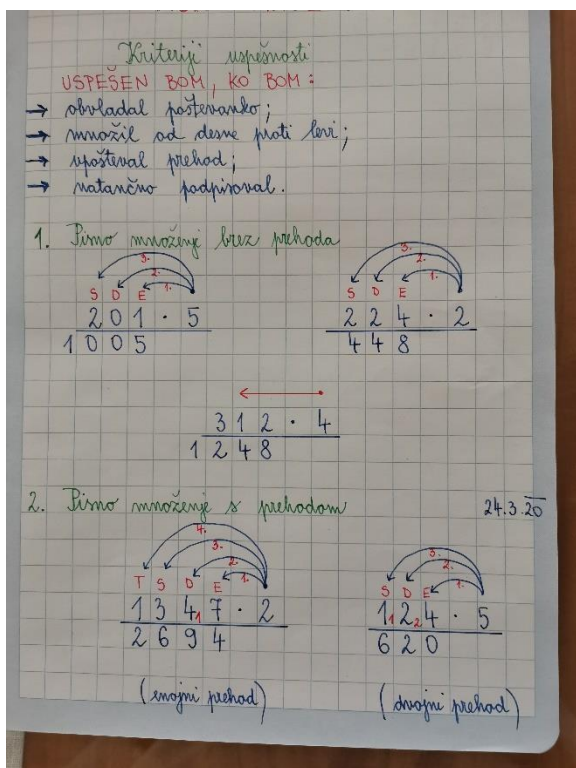 Kriteriji uspešnosti
USPEŠEN BOM, KO BOM:
→ obvladal poštevanko;
→ množil od desne proti levi;
→ upošteval prehod;
→ natančno podpisoval.
1. Pisno množenje brez prehoda
3. 3.
2. 2.
1. 1.
S D E S D E
201 · 5 224 · 2
1005 448
312 · 4
1248
2. Pisno množenje s prehodom 24.3.20
4.
3. 3.
2. 2.
1. 1.
T S D E S D E
134₁7 · 2 1₁2₂4 · 5
2694 620
(enojni prehod) (dvojni prehod)